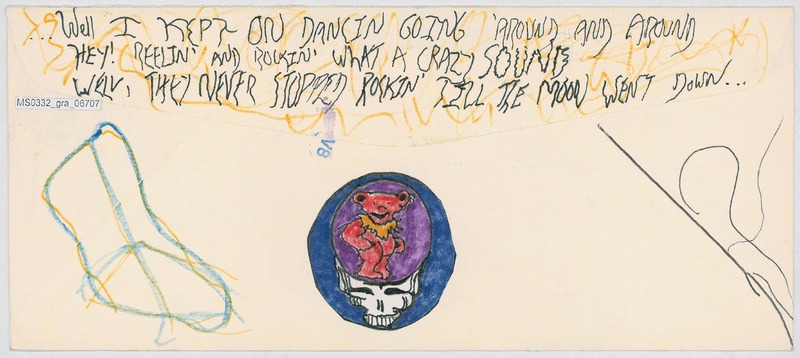 ...Well I KEPT ON DANCIN GOING 'AROUND AND AROUND
HEY! REELIN' AND ROCKIN' WHAT A CRAZY SOUND
WELL, THEY NEVER STOPPED ROCKIN' TILL THE MOON WENT DOWN...
MS0332_gra_06707
V8